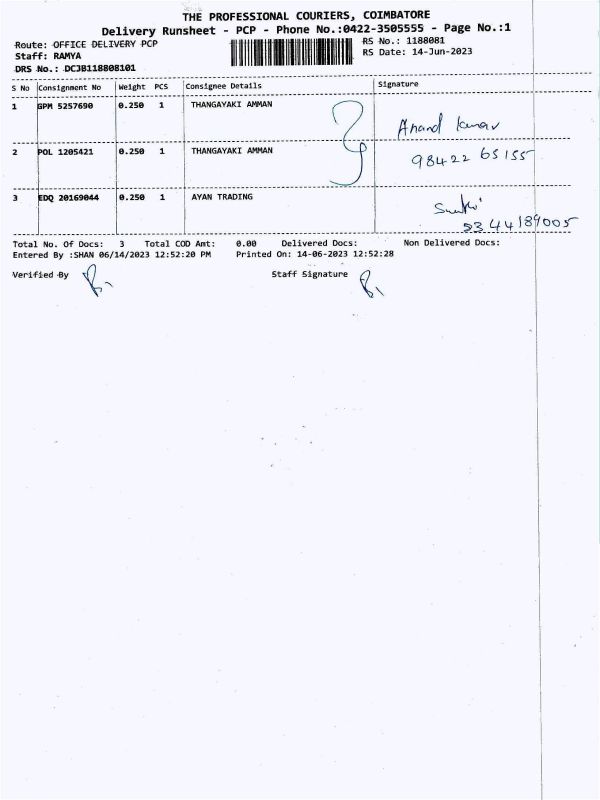 THE PROFESSIONAL COURIERS, COIMBATORE
Delivery Runsheet - PCP - Phone No.:0422-3505555 - Page No.:1
Route: OFFICE DELIVERY PCP RS No.: 1188081
Staff: RAMYA RS Date: 14-Jun-2023
DRS No.: DCJB118808101
S No Consignment No Weight PCS Consignee Details Signature
1 GPM 5257690 0.250 1 THANGAYAKI AMMAN
Anand kumar
2 POL 1205421 0.250 1 THANGAYAKI AMMAN 98422 65155
3 EDQ 20169044 0.250 1 AYAN TRADING
9344189005
Total No. Of Docs: 3 Total COD Amt: 0.00 Delivered Docs: Non Delivered Docs:
Entered By :SHAN 06/14/2023 12:52:20 PM Printed On: 14-06-2023 12:52:28
Verified By Staff Signature